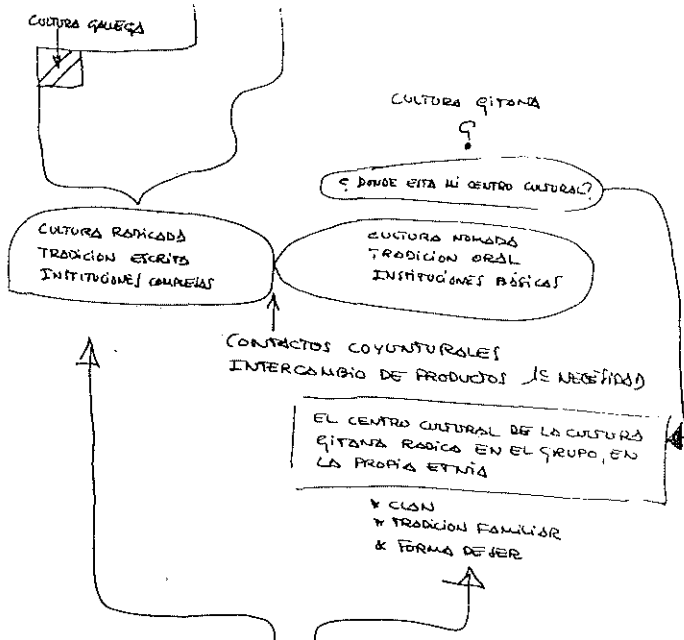 CULTURA GALLEGA
CULTURA GITANA
?
¿ DONDE ESTA MI CENTRO CULTURAL?
CULTURA RADICADA
TRADICION ESCRITA
INSTITUCIONES COMPLEJAS
CULTURA NOMADA
TRADICION ORAL
INSTITUCIONES BÁSICAS
CONTACTOS COYUNTURALES
INTERCAMBIO DE PRODUCTOS NECESIDAD
EL CENTRO CULTURAL DE LA CULTURA
GITANA RADICA EN EL GRUPO, EN
LA PROPIA ETNIA
* CLAN
* TRADICION FAMILIAR
* FORMA DE SER